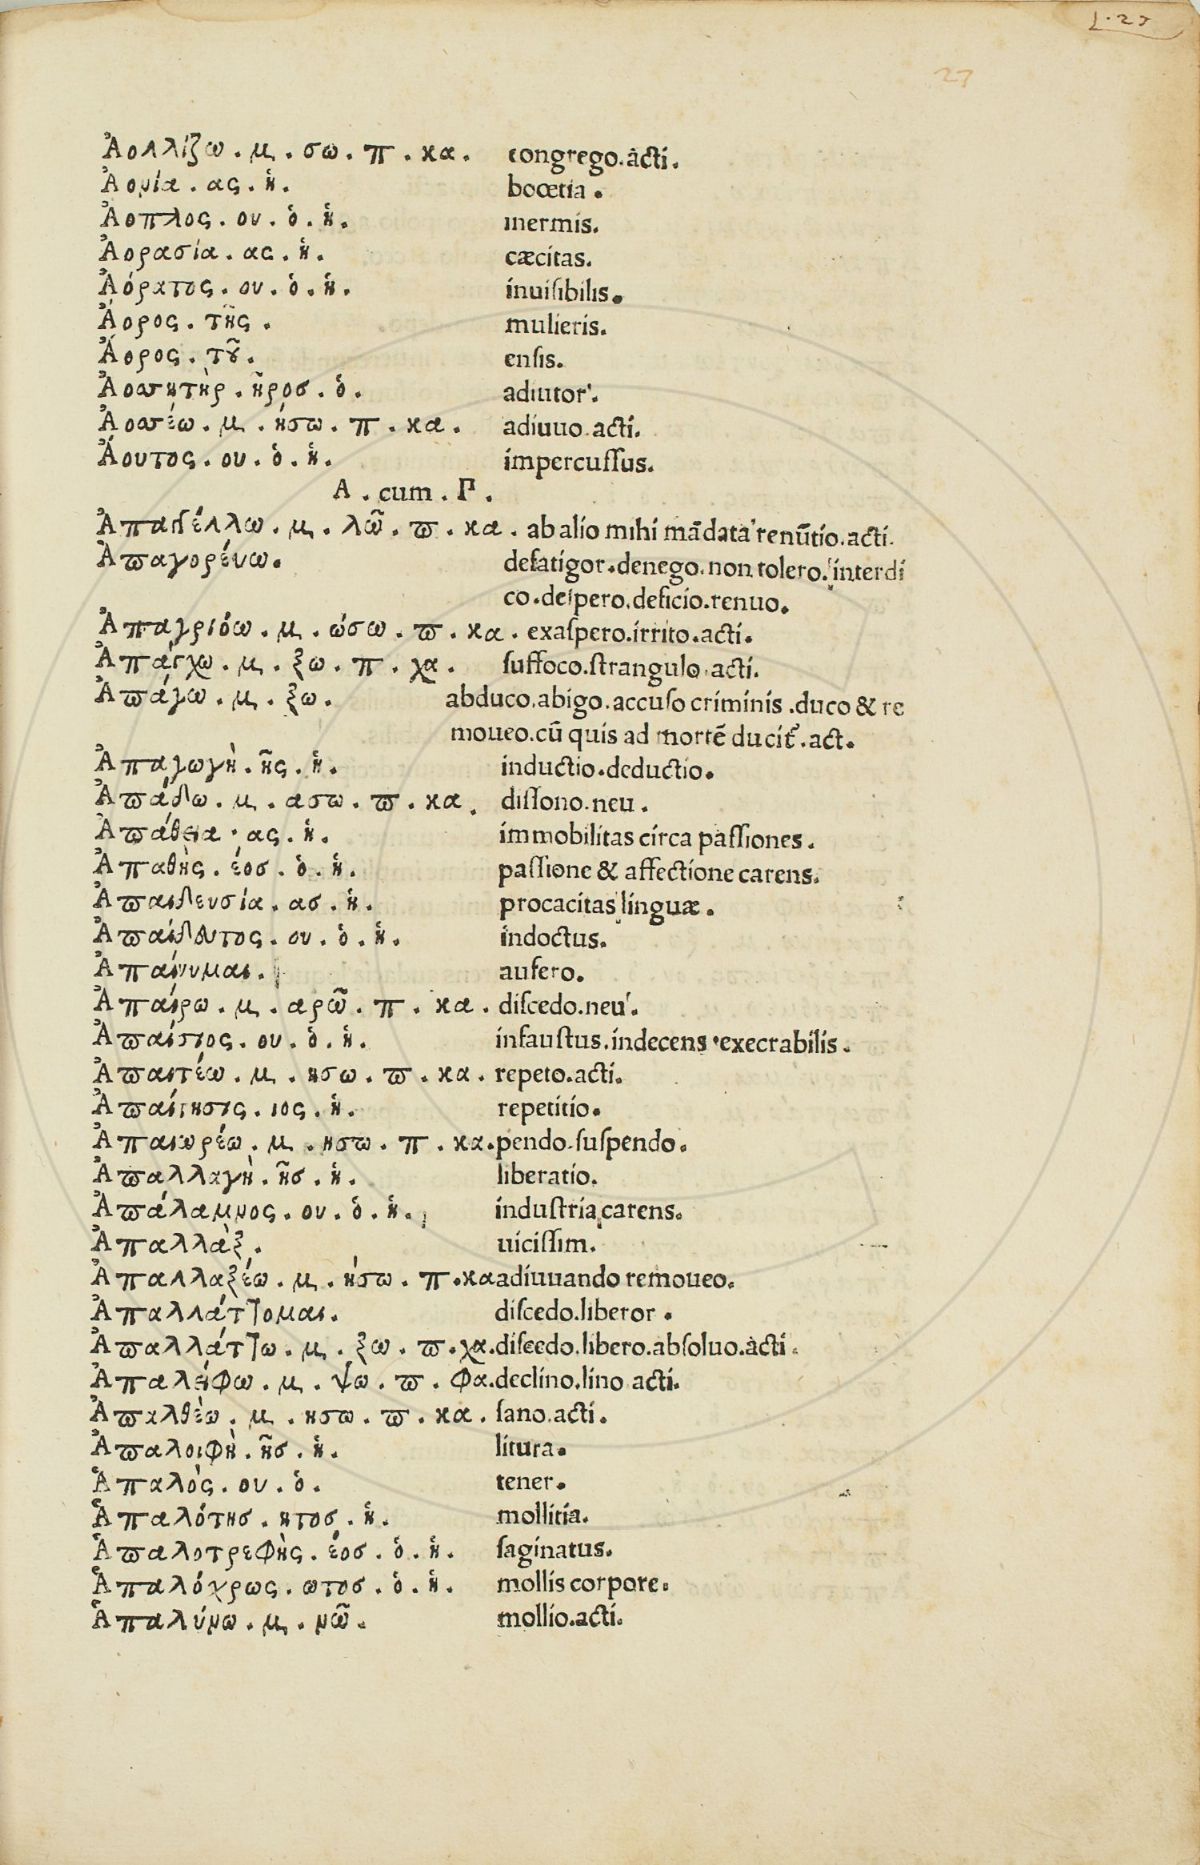 L.27
27
Ἀολλίζω. μ. σω. π. κα. congrego.acti.
Ἀονία. ας. ἡ. boœtia.
Ἄοπλος. ου. ὁ. ἡ. inermis.
Ἀορασία. ας. ἡ. cæcitas.
Ἀόρατος. ου. ὁ. ἡ. inuisibilis.
Ἄορος. τῆς. mulieris.
Ἄορος. τοῦ. ensis.
Ἀοσσητὴρ. ῆρος. ὁ. adiutor.
Ἀοσσέω. μ. ήσω. π. κα. adiuuo.acti.
Ἄουτος. ου. ὁ. ἡ. impercussus.
A. cum. Γ.
Ἀπαγγέλλω. μ. λῶ. π. κα. ab alio mihi mādata renūtio.acti.
Ἀπαγορέυω. defatigor.denego.non tolero.interdi
co.despero.deficio.renuo.
Ἀπαγριόω. μ. ώσω. π. κα. exaspero.irrito.acti.
Ἀπάγχω. μ. ξω. π. χα. suffoco.strangulo.acti.
Ἀπάγω. μ. ξω. abduco.abigo.accuso criminis.duco & re
moueo.cū quis ad mortē ducit᷑.act.
Ἀπαγωγὴ. ῆς. ἡ. inductio.deductio.
Ἀπάδω. μ. ασω. π. κα. dissono.neu.
Ἀπάθεια. ας. ἡ. immobilitas circa passiones.
Ἀπαθὴς. έος. ὁ. ἡ. passione & affectione carens.
Ἀπαιδευσία. ας. ἡ. procacitas linguæ.
Ἀπαίδευτος. ου. ὁ. ἡ. indoctus.
Ἀπαίνυμαι. aufero.
Ἀπαίρω. μ. αρῶ. π. κα. discedo.neu.
Ἀπαίσιος. ου. ὁ. ἡ. infaustus.indecens.execrabilis.
Ἀπαιτέω. μ. ησω. π. κα. repeto.acti.
Ἀπαίτησις. ιος. ἡ. repetitio.
Ἀπαιωρέω. μ. ησω. π. κα. pendo.suspendo.
Ἀπαλλαγὴ. ῆς. ἡ. liberatio.
Ἀπάλαμνος. ου. ὁ. ἡ. industria carens.
Ἀπαλλὰξ. uicissim.
Ἀπαλλαξέω. μ. ήσω. π. κα adiuuando remoueo.
Ἀπαλλάττομαι. discedo.liberor.
Ἀπαλλάττω. μ. ξω. π. χα. discedo.libero.absoluo.acti.
Ἀπαλείφω. μ. ψω. π. φα. declino.lino acti.
Ἀπαλθέω. μ. ησω. π. κα. sano.acti.
Ἀπαλοιφὴ. ῆς. ἡ. litura.
Ἁπαλὸς. ου. ὁ. tener.
Ἁπαλότης. ητος. ἡ. mollitia.
Ἁπαλοτρεφὴς. έος. ὁ. ἡ. saginatus.
Ἁπαλόχρως. ωτος. ὁ. ἡ. mollis corpore.
Ἁπαλύνω. μ. νῶ. mollio.acti.